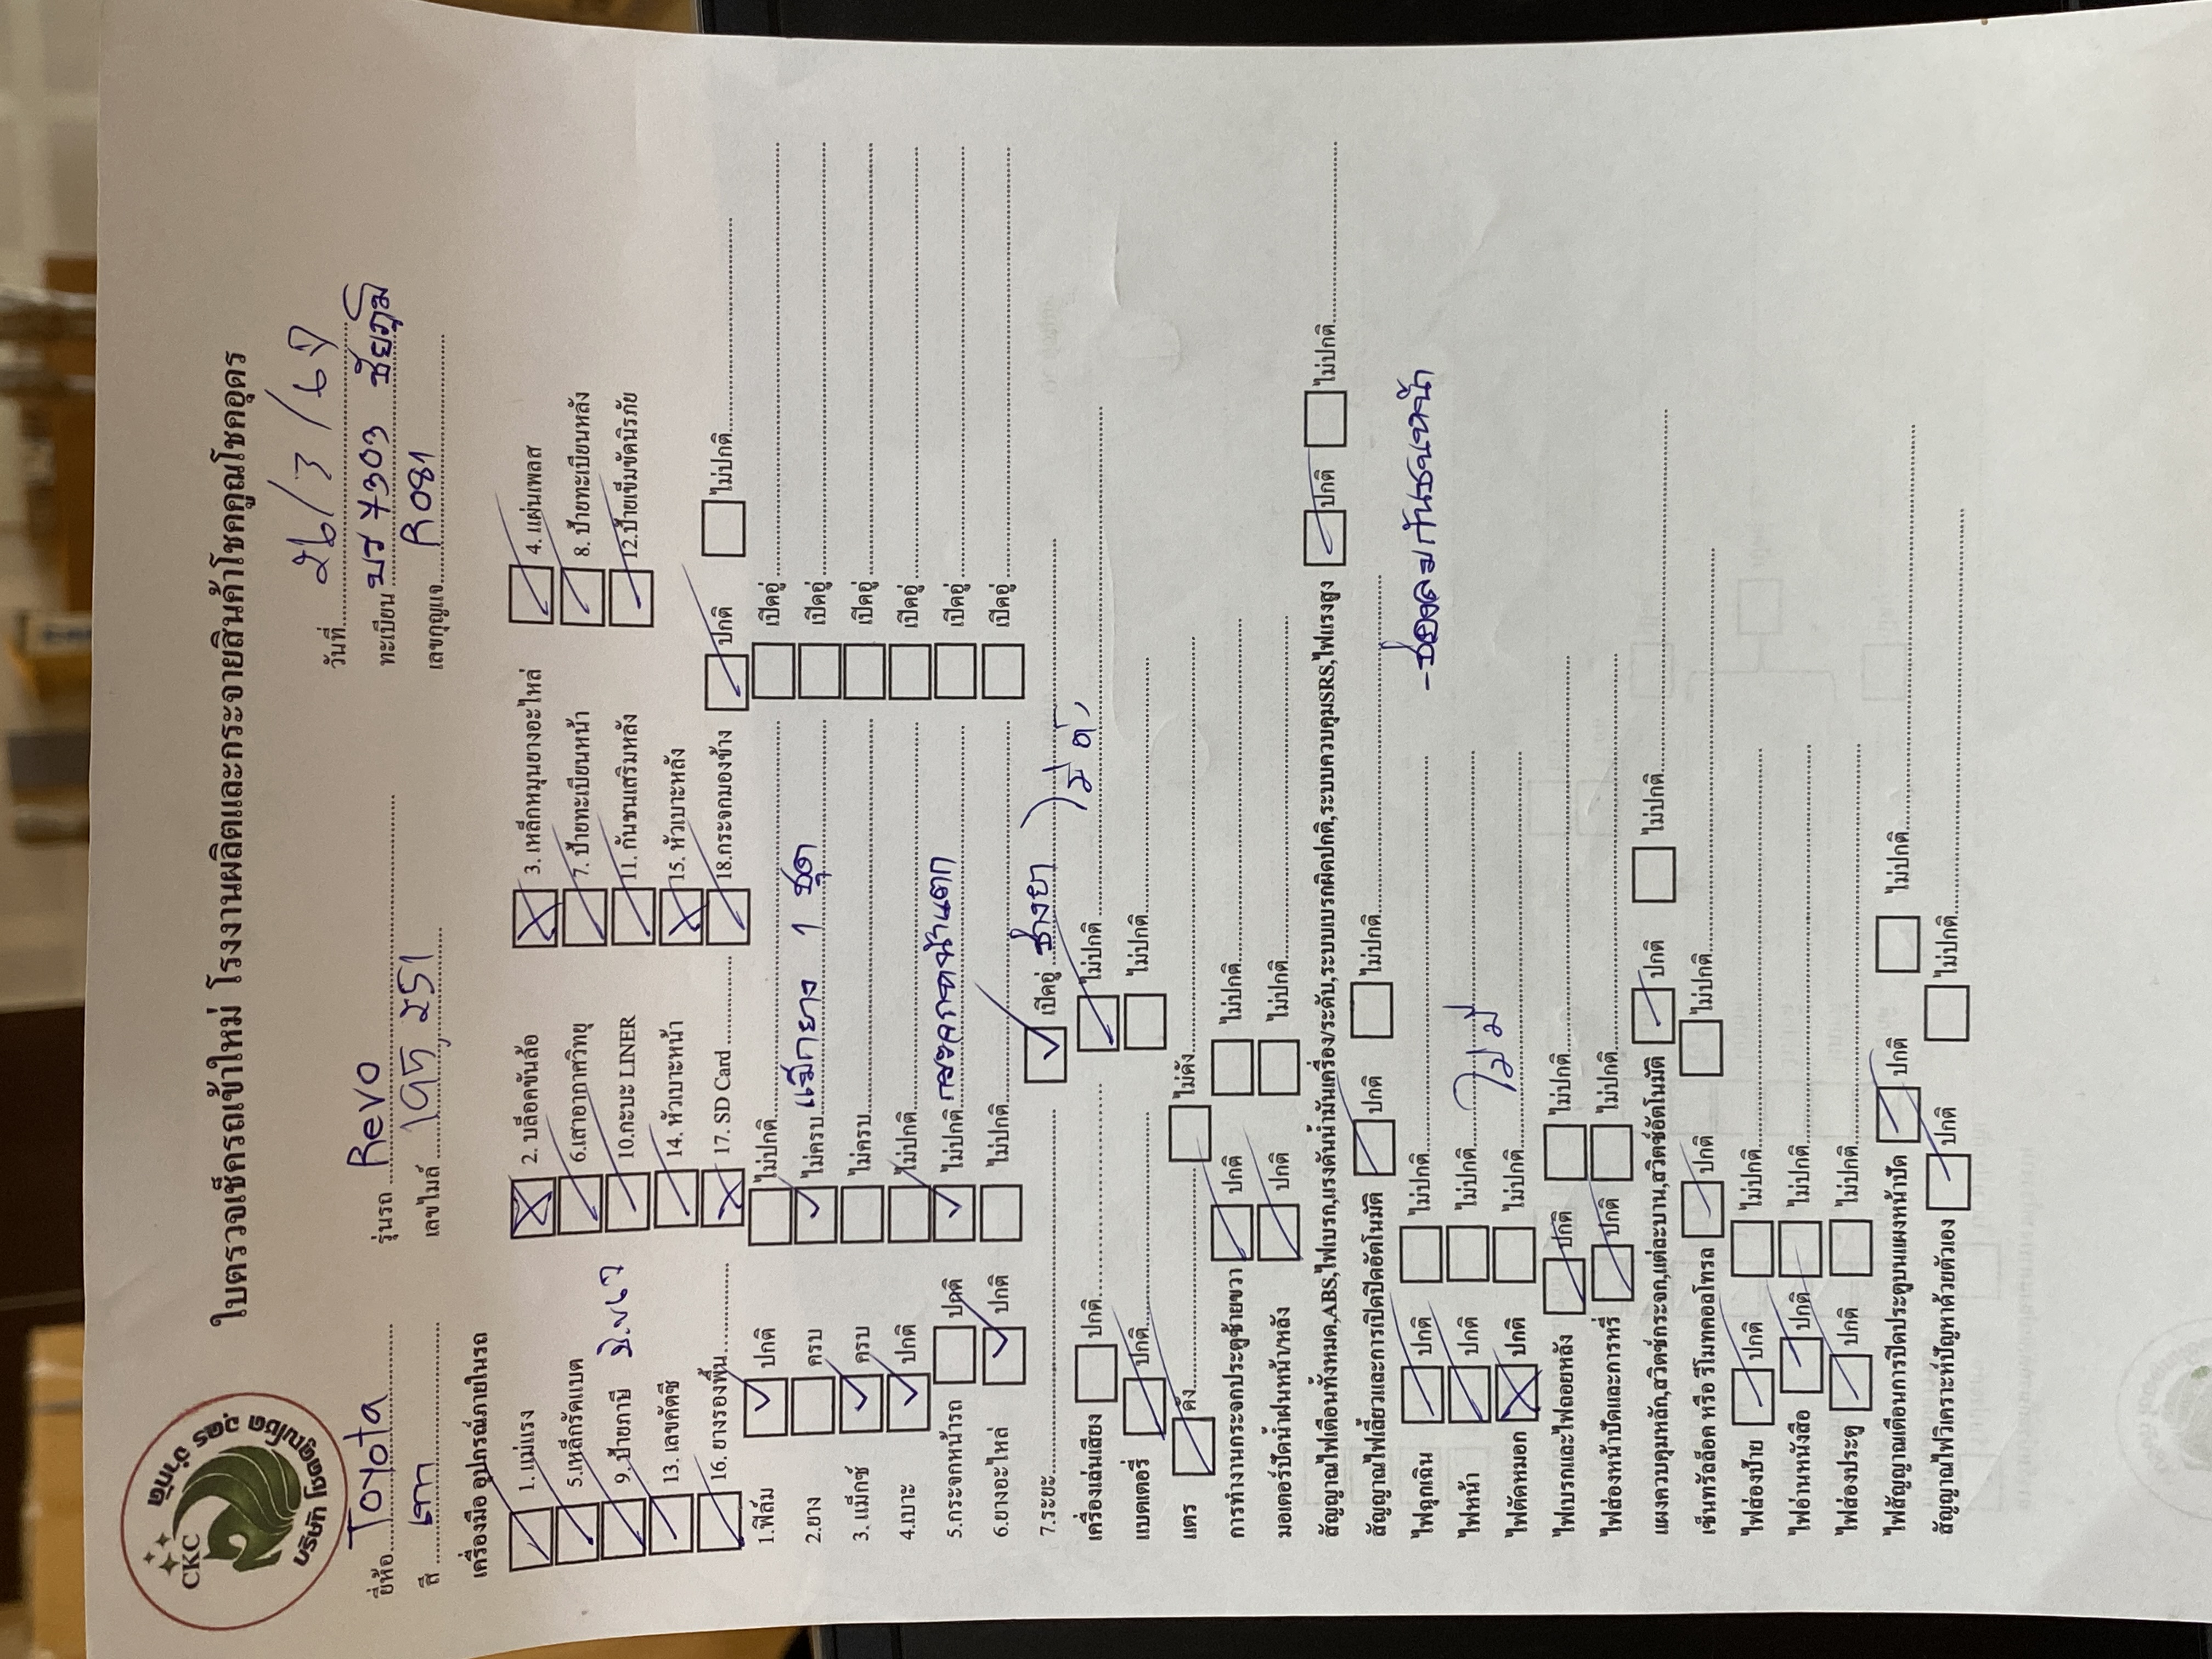 CKC
บริษัท โชคคูณโชค อุดร จำกัด
ใบตรวจเช็ครถเข้าใหม่ โรงงานผลิตและกระจายสินค้าโชคคูณโชคอุดร
วันที่ 26/3/67
ยี่ห้อ Toyota รุ่นรถ Revo ทะเบียน บร 7303 ชัยภูมิ
สี เทา เลขไมล์ เลขกุญแจ R081
เครื่องมือ อุปกรณ์ภายในรถ
1. แม่แรง 2. บล็อคขันล้อ 3. เหล็กหมุนยางอะไหล่ 4. แผ่นเพลส
5.เหล็กรัดแบต 6.เสาอากาศวิทยุ 7. ป้ายทะเบียนหน้า 8. ป้ายทะเบียนหลัง
9. ป้ายภาษี 10.กะบะ LINER 11. กันชนเสริมหลัง 12.ป้ายเข็มขัดนิรภัย
13. เลขคัตซี 14. หัวเบาะหน้า 15. หัวเบาะหลัง
16. ยางรองพื้น 17. SD Card 18.กระจกมองข้าง ปกติ ไม่ปกติ
1.ฟิล์ม ปกติ ไม่ปกติ เปิดอู่
2.ยาง ครบ ไม่ครบ แม็กยาง 1 ชุด เปิดอู่
3. แม็กซ์ ครบ ไม่ครบ เปิดอู่
4.เบาะ ปกติ ไม่ปกติ เปิดอู่
5.กระจกหน้ารถ ปกติ ไม่ปกติ กระจกหน้าแตก เปิดอู่
6.ยางอะไหล่ ปกติ ไม่ปกติ เปิดอู่
7.ระยะ เปิดอู่ ช่างยา
เครื่องเล่นเสียง ปกติ ไม่ปกติ ไม่ดัง
แบตเตอรี่ ปกติ ไม่ปกติ
แตร ดัง ไม่ดัง
การทำงานกระจกประตูซ้ายขวา ปกติ ไม่ปกติ
มอเตอร์ปัดน้ำฝนหน้า/หลัง ปกติ ไม่ปกติ
สัญญาณไฟเตือนทั้งหมด,ABS,ไฟเบรก,แรงดันน้ำมันเครื่อง/ระดับ,ระบบเบรกผิดปกติ,ระบบควบคุมSRS,ไฟแรงสูง ปกติ ไม่ปกติ
สัญญาณไฟเลี้ยวและการเปิดปิดอัตโนมัติ ปกติ ไม่ปกติ
ไฟฉุกเฉิน ปกติ ไม่ปกติ -ช่องลมกันชนหน้า
ไฟหน้า ปกติ ไม่ปกติ
ไฟตัดหมอก ปกติ ไม่ปกติ ไม่มี
ไฟเบรกและไฟถอยหลัง ปกติ ไม่ปกติ
ไฟส่องหน้าปัดและการหรี่ ปกติ ไม่ปกติ
แผงควบคุมหลัก,สวิตช์กระจก,แต่ละบาน,สวิตช์อัตโนมัติ ปกติ ไม่ปกติ
เซ็นทรัลล็อค หรือ รีโมทคอลโทรล ปกติ ไม่ปกติ
ไฟส่องป้าย ปกติ ไม่ปกติ
ไฟอ่านหนังสือ ปกติ ไม่ปกติ
ไฟส่องประตู ปกติ ไม่ปกติ
ไฟสัญญาณเตือนการปิดประตูบนแผงหน้าปัด ปกติ ไม่ปกติ
สัญญาณไฟวิเคราะห์ปัญหาด้วยตัวเอง ปกติ ไม่ปกติ